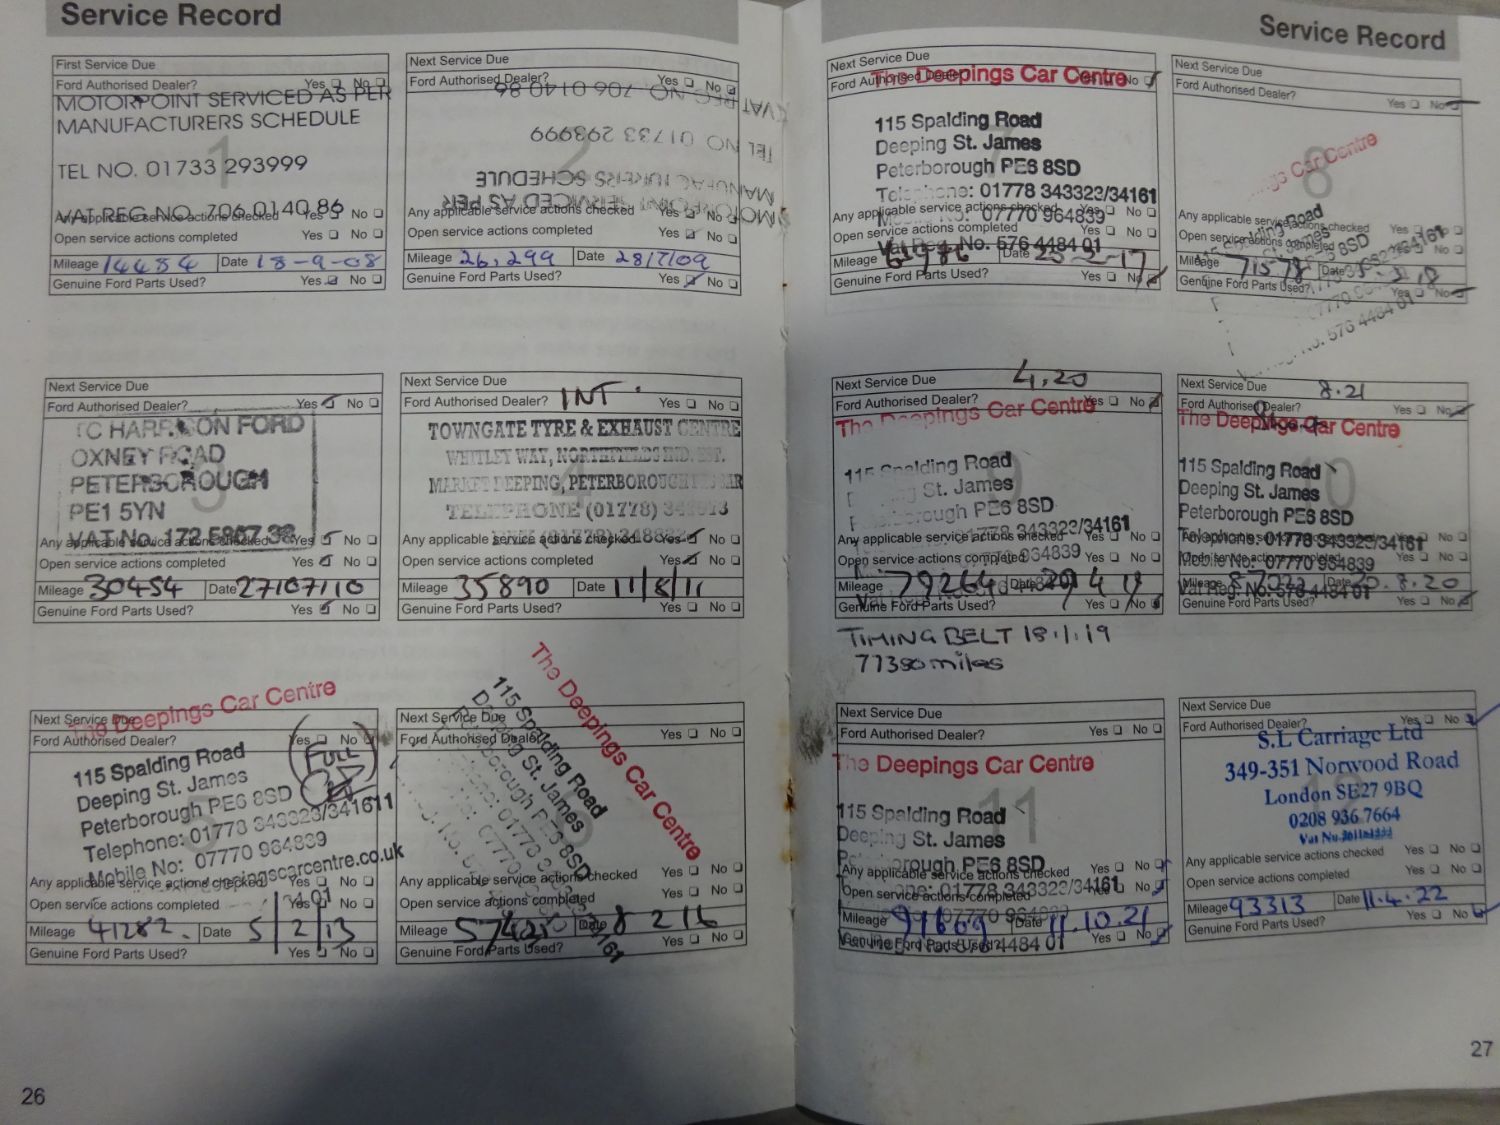 Service Record
First Service Due
Ford Authorised Dealer? Yes No
MOTORPOINT SERVICED AS PER
MANUFACTURERS SCHEDULE
1
TEL NO. 01733 293999
VAT REG NO. 706 0140 86
Any applicable service actions checked Yes No
Open service actions completed Yes No
Mileage 14484 Date 18-9-08
Genuine Ford Parts Used? Yes No
Next Service Due
Ford Authorised Dealer? Yes No
VAT REG NO. 706 0140 86
TEL NO 01733 293999
2
MANUFACTURERS SCHEDULE
MOTORPOINT SERVICED AS PER
Any applicable service actions checked Yes No
Open service actions completed Yes No
Mileage 26,299 Date 28/7/09
Genuine Ford Parts Used? Yes No
Next Service Due
Ford Authorised Dealer? Yes No
TC HARRISON FORD
OXNEY ROAD
PETERBOROUGH
3
PE1 5YN
VAT NO. 172 5807 38
Any applicable service actions checked Yes No
Open service actions completed Yes No
Mileage 30454 Date 27/07/10
Genuine Ford Parts Used? Yes No
Next Service Due
Ford Authorised Dealer? INT. Yes No
TOWNGATE TYRE & EXHAUST CENTRE
WHITLEY WAY, NORTHFIELDS IND. EST.
MARKET DEEPING, PETERBOROUGH
4
TELEPHONE (01778)
Any applicable service actions checked Yes No
Open service actions completed Yes No
Mileage 35890 Date 11/8/11
Genuine Ford Parts Used? Yes No
The Deepings Car Centre
Next Service Due
Ford Authorised Dealer? Yes No
FULL
115 Spalding Road
Deeping St. James
Peterborough PE6 8SD
5
Telephone: 01778 343323/341611
Mobile No: 07770 964839
Any applicable service actions checked Yes No
Open service actions completed Yes No
Mileage 41282. Date 5/2/13
Genuine Ford Parts Used? Yes No
The Deepings Car Centre
Next Service Due
Ford Authorised Dealer? Yes No
115 Spalding Road
Deeping St. James
Peterborough PE6 8SD
Any applicable service actions checked Yes No
Open service actions completed Yes No
Mileage Date 8 2 16
Genuine Ford Parts Used? Yes No
26
Service Record
Next Service Due
Ford Authorised Dealer? Yes No
The Deepings Car Centre
115 Spalding Road
Deeping St. James
7
Peterborough PE6 8SD
Telephone: 01778 343323/34161
Any applicable service actions checked Yes No
07770 964839
Open service actions completed Yes No
Vat Reg. No. 576 4484 01
Mileage Date 23-2-17
Genuine Ford Parts Used? Yes No
Next Service Due
Ford Authorised Dealer? Yes No
Car Centre
8
Road
St. James
8SD
Any applicable service actions checked Yes No
Open service actions completed Yes No
Mileage 71578 Date 3 18
Genuine Ford Parts Used? Yes No
576 4484 01
Next Service Due 4.20
Ford Authorised Dealer? Yes No
The Deepings Car Centre
115 Spalding Road
9
Deeping St. James
Peterborough PE6 8SD
01778 343323/34161
Any applicable service actions checked Yes No
Open service actions completed Yes No
Mileage 79264 Date 29 4 19
Genuine Ford Parts Used? Yes No
TIMING BELT 18.1.19
77380 miles
Next Service Due 8.21
Ford Authorised Dealer? Yes No
The Deepings Car Centre
115 Spalding Road
10
Deeping St. James
Peterborough PE6 8SD
Telephone: 01778 343323/34161
Mobile No: 07770 964839
Mileage Date 20.8.20
Vat Reg. No. 576 4484 01
Yes No
Next Service Due
Ford Authorised Dealer?
The Deepings Car Centre
11
115 Spalding Road
Deeping St. James
Peterborough PE6 8SD
Any applicable service actions checked Yes No
01778 343323/34161
Open service actions completed Yes No
Mileage 91609 Date 11.10.21
Genuine Ford Parts Used? Yes No
Next Service Due
Ford Authorised Dealer? Yes No
S.L Carriage Ltd
349-351 Norwood Road
London SE27 9BQ
12
0208 936 7664
Any applicable service actions checked Yes No
Open service actions completed Yes No
Mileage 93313 Date 11.4.22
Genuine Ford Parts Used? Yes No
27